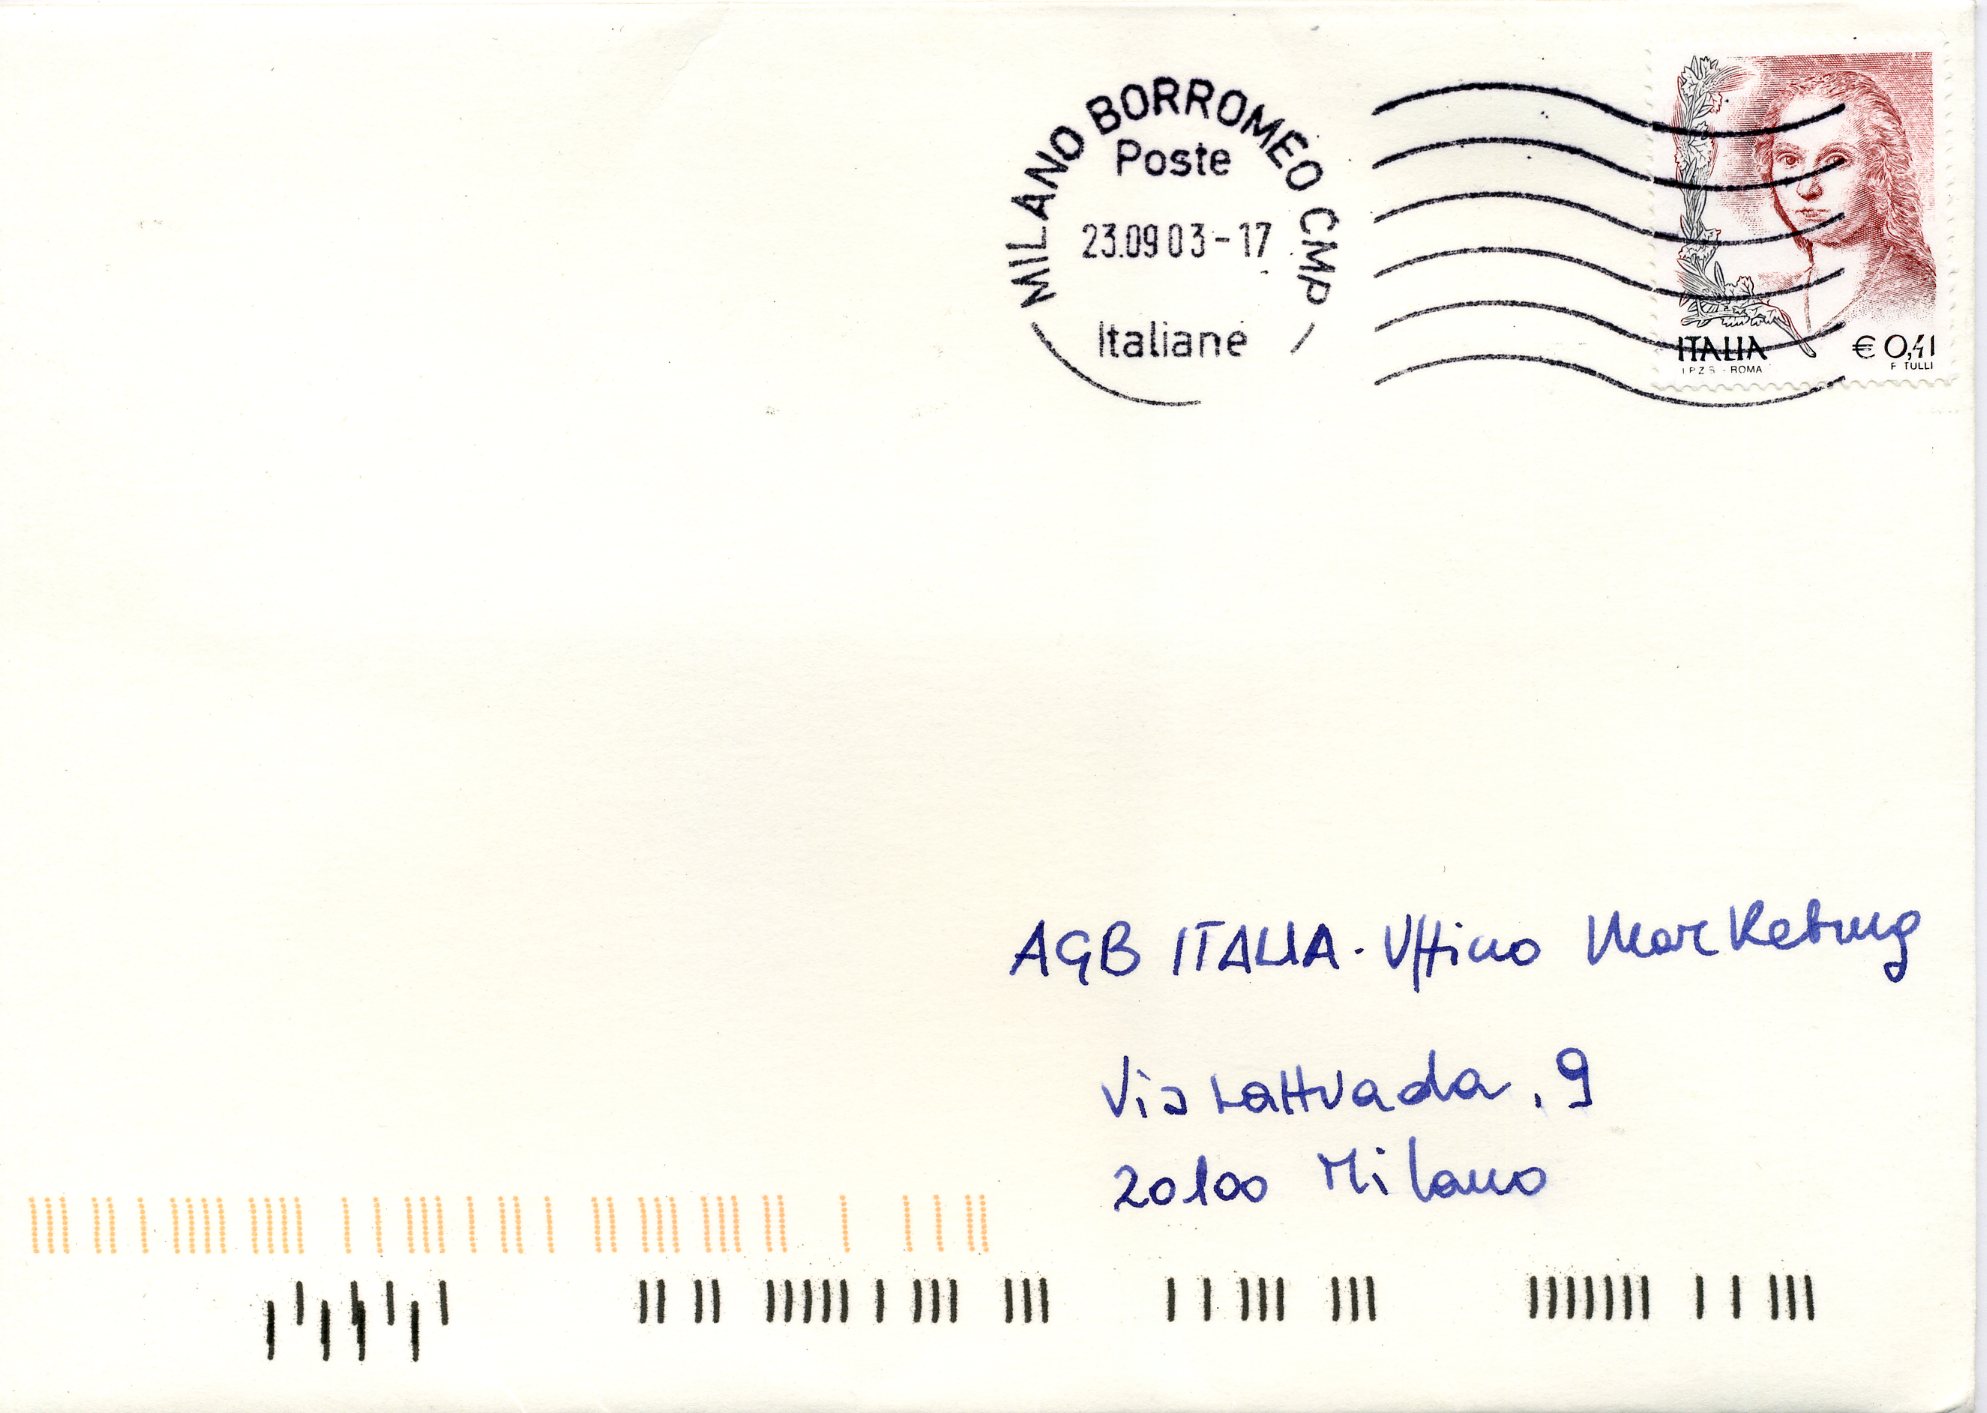 MILANO BORROMEO CMP
Poste
23.09 03-17
Italiane
ITALIA € 0,41
I.P.Z.S. - ROMA F. TULLI
AGB ITALIA - Ufficio Marketing
Via Lattuada, 9
20100 Milano